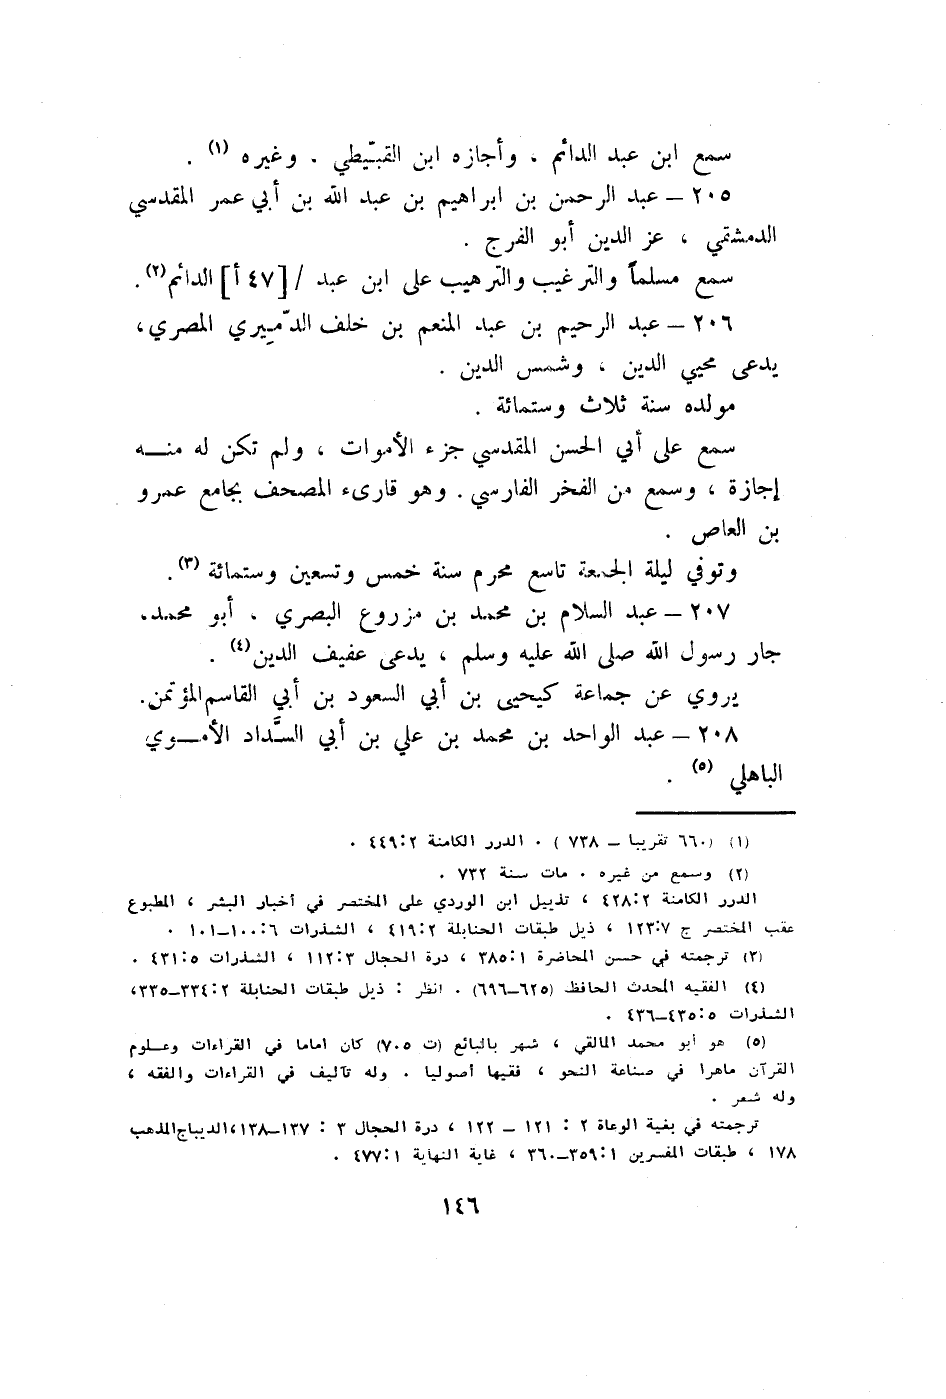 سمع ابن عبد الدائم ، وأجازه ابن القبّيطي . وغيره (١) .
٢٠٥ – عبد الرحمن بن ابراهيم بن عبد الله بن أبي عمر المقدسي
الدمشقي ، عز الدين أبو الفرج .
سمع مسلماً والترغيب والترهيب على ابن عبد / [٤٧ أ] الدائم(٢).
٢٠٦ – عبد الرحيم بن عبد المنعم بن خلف الدّمِيري المصري،
يدعى محيي الدين ، وشمس الدين .
مولده سنة ثلاث وستمائة .
سمع على أبي الحسن المقدسي جزء الأموات ، ولم تكن له منـــه
إجازة ، وسمع من الفخر الفارسي . وهو قارىء المصحف بجامع عمرو
بن العاص .
وتوفي ليلة الجمعة تاسع محرم سنة خمس وتسعين وستمائة (٣).
٢٠٧ – عبد السلام بن محمد بن مزروع البصري ، أبو محمد،
جار رسول الله صلى الله عليه وسلم ، يدعى عفيف الدين(٤) .
يروي عن جماعة كيحيى بن أبي السعود بن أبي القاسم المؤتمن.
٢٠٨ – عبد الواحد بن محمد بن علي بن أبي السَّداد الأمـــوي
الباهلي (٥) .
(١) (٦٦٠ تقريبا – ٧٣٨ ) . الدرر الكامنة ٤٤٩:٢ .
(٢) وسمع من غيره . مات سنة ٧٣٢ .
الدرر الكامنة ٤٢٨:٢ ، تذييل ابن الوردي على المختصر في أخبار البشر ، المطبوع
عقب المختصر ج ١٢٣:٧ ، ذيل طبقات الحنابلة ٤١٩:٢ ، الشذرات ١٠٠:٦–١٠١ .
(٣) ترجمته في حسن المحاضرة ٣٨٥:١ ، درة الحجال ١١٢:٣ ، الشذرات ٤٣١:٥ .
(٤) الفقيه المحدث الحافظ (٦٢٥–٦٩٦) . انظر : ذيل طبقات الحنابلة ٣٣٤:٢–٣٣٥،
الشذرات ٤٣٥:٥–٤٣٦ .
(٥) هو أبو محمد المالقي ، شهر بالبائع (ت ٧٠٥) كان اماما في القراءات وعلــوم
القرآن ماهرا في صناعة النحو ، فقيها أصوليا . وله تآليف في القراءات والفقه ،
وله شعر .
ترجمته في بغية الوعاة ٢ : ١٢١ – ١٢٢ ، درة الحجال ٣ : ١٣٧–١٣٨،الديباج المذهب
١٧٨ ، طبقات المفسرين ٣٥٩:١–٣٦٠ ، غاية النهاية ٤٧٧:١ .
١٤٦